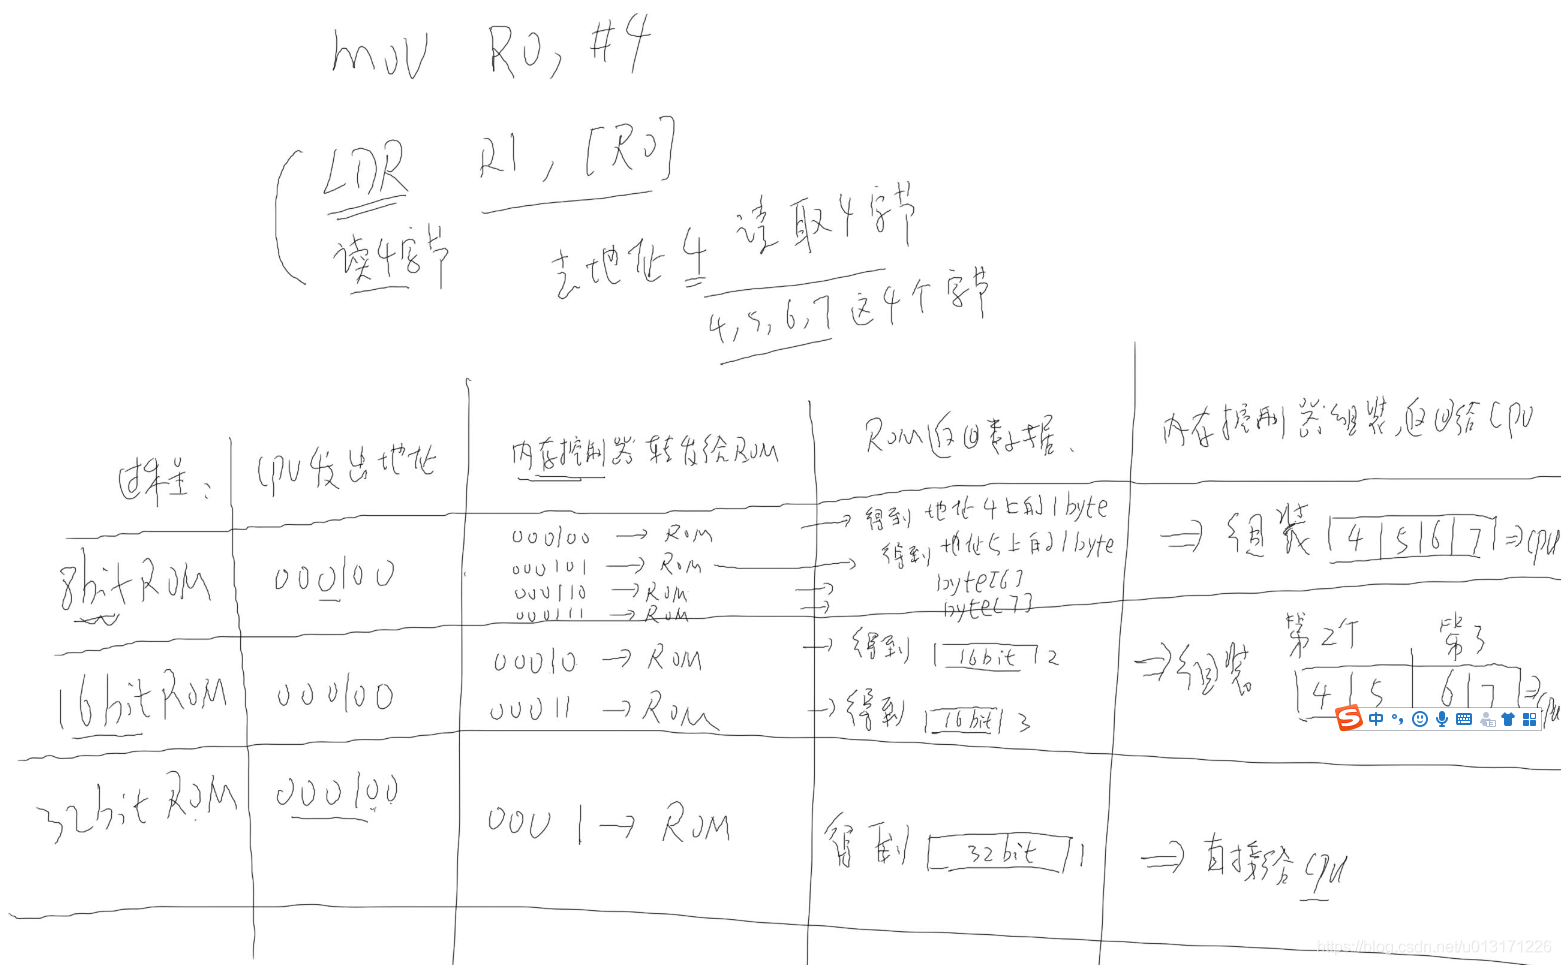 mov R0, #4
LDR R1, [R0]
读4字节
去地址4 读取4字节
4,5,6,7 这4个字节
过程:
CPU发出地址
内存控制器 转发给ROM
ROM返回数据.
内存控制器组装,返回给CPU
8bit ROM
000100
000100 → ROM
000101 → ROM
000110 → ROM
000111 → ROM
→ 得到 地址4上的1byte
→ 得到 地址5上的1byte
→ byte[6]
→ byte[7]
⇒ 组装 4 5 6 7 ⇒ CPU
16bit ROM
000100
00010 → ROM
00011 → ROM
→ 得到 16bit 2
→ 得到 16bit 3
第2个 第3
⇒ 组装 4 5 6 7 ⇒ CPU
中
32bit ROM
000100
0001 → ROM
得到 32bit 1
⇒ 直接给CPU
https://blog.csdn.net/u013171226